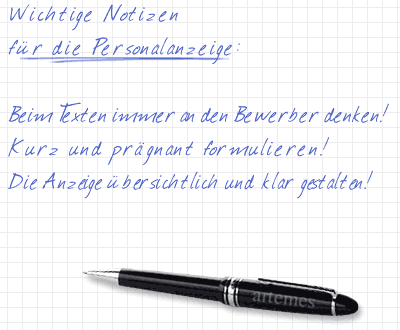 Wichtige Notizen
für die Personalanzeige:
Beim Texten immer an den Bewerber denken!
Kurz und prägnant formulieren!
Die Anzeige übersichtlich und klar gestalten!
artemes